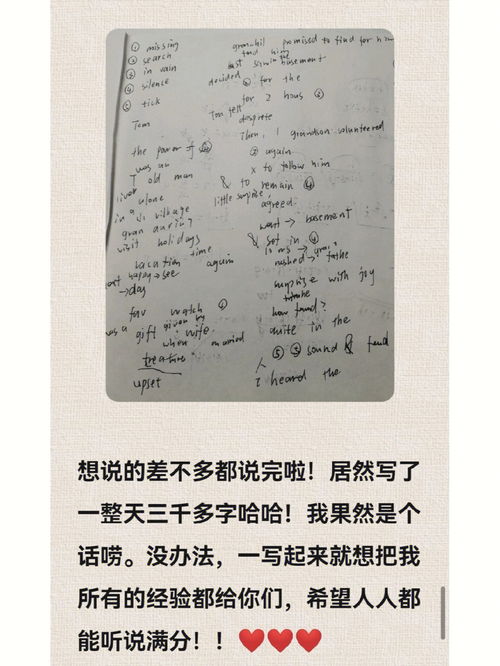 ① missing
② search
③ in vain
④ silence
⑤ tick
Tom
the power of ④
T was an
lives old man
alone
in a village
gran during
visit holidays
vacation time
happy → see again
→ day
fav watch ①
was a gift given by
wife
when married
treature
upset
gran-chil promised to find for him
told him
last in the basement
decided ② for the
for 2 hous
Tom felt
desprete
Then, 1 grandson volunteered
② again
x to follow him
& to remain ④
little surprise
agreed.
went → basement
& set in ④
rushed →
surprise with joy
how found?
quite in the
⑤ ⑤ sound & find
I heard the
想说的差不多都说完啦！居然写了
一整天三千多字哈哈！我果然是个
话唠。没办法，一写起来就想把我
所有的经验都给你们，希望人人都
能听说满分！！❤️❤️❤️